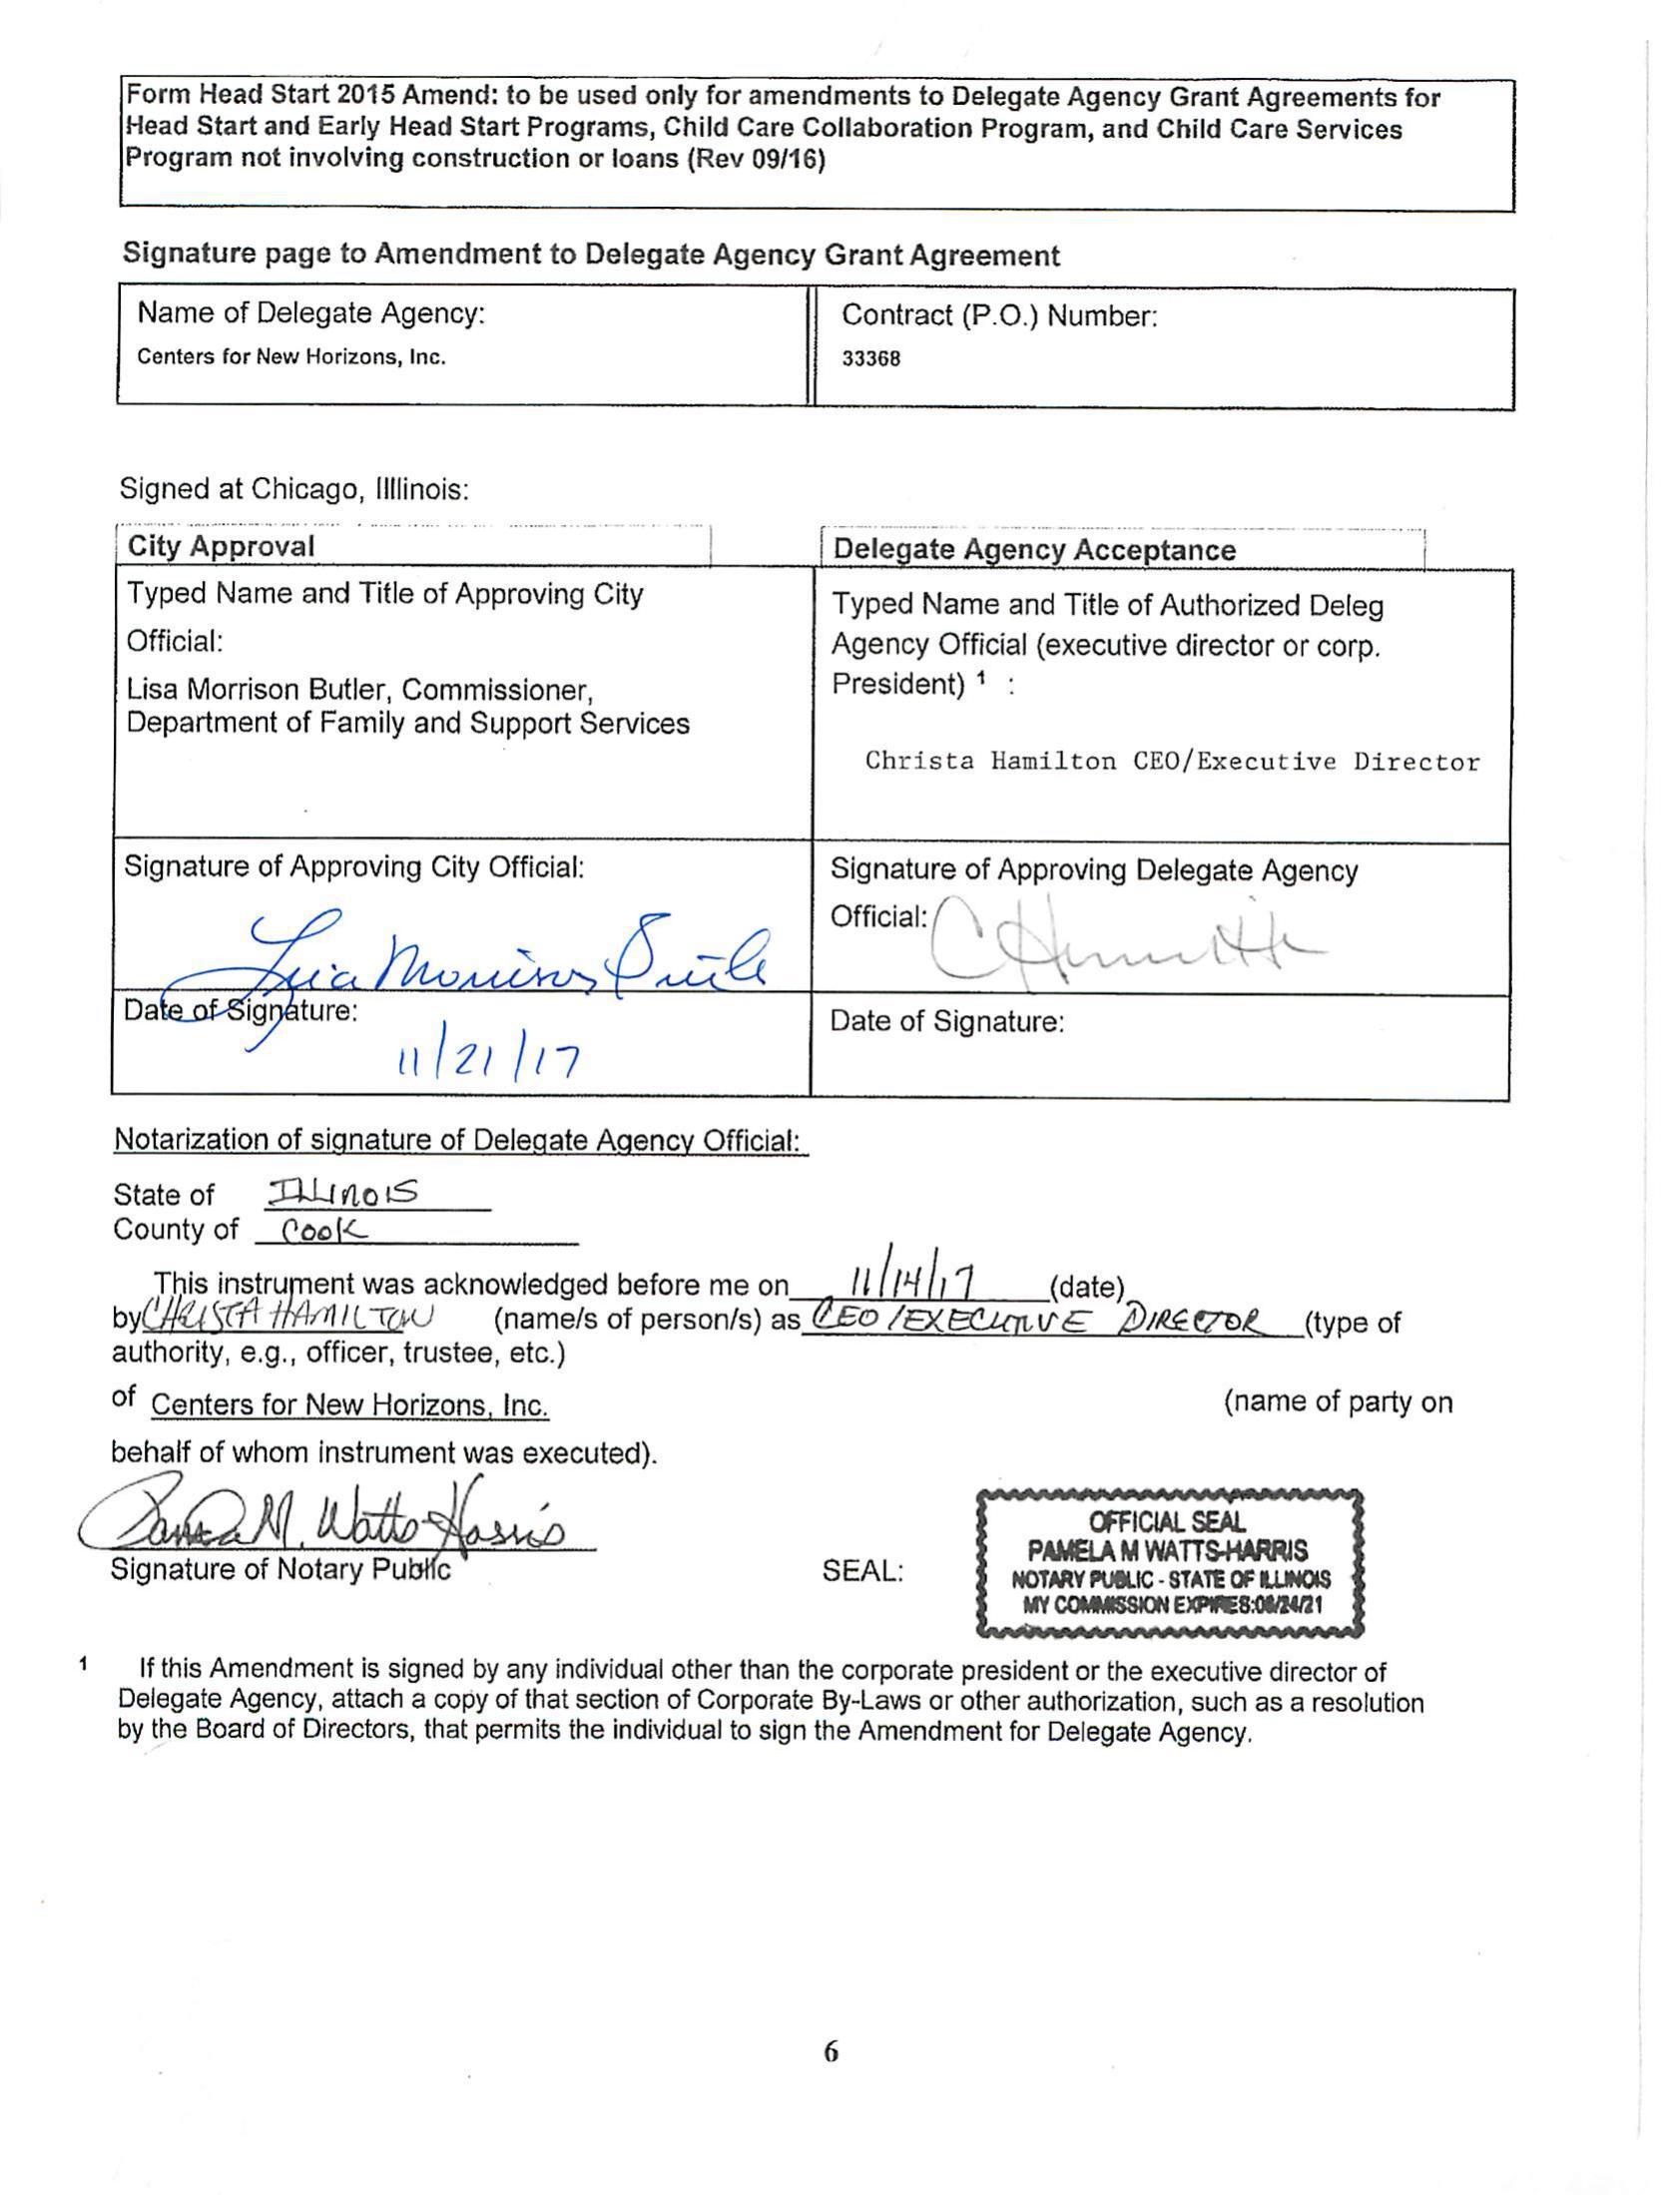 Form Head Start 2015 Amend: to be used only for amendments to Delegate Agency Grant Agreements for
Head Start and Early Head Start Programs, Child Care Collaboration Program, and Child Care Services
Program not involving construction or loans (Rev 09/16)
Signature page to Amendment to Delegate Agency Grant Agreement
Name of Delegate Agency:
Centers for New Horizons, Inc.
Contract (P.O.) Number:
33368
Signed at Chicago, Illlinois:
City Approval
Typed Name and Title of Approving City
Official:
Lisa Morrison Butler, Commissioner,
Department of Family and Support Services
Delegate Agency Acceptance
Typed Name and Title of Authorized Deleg
Agency Official (executive director or corp.
President) 1 :
Christa Hamilton CEO/Executive Director
Signature of Approving City Official:
Lisa Morrison Butler
Signature of Approving Delegate Agency
Official:
Date of Signature:
11/21/17
Date of Signature:
Notarization of signature of Delegate Agency Official:
State of ILLINOIS
County of Cook
This instrument was acknowledged before me on 11/14/17 (date)
by CHRISTA HAMILTON (name/s of person/s) as CEO/EXECUTIVE DIRECTOR (type of
authority, e.g., officer, trustee, etc.)
of Centers for New Horizons, Inc. (name of party on
behalf of whom instrument was executed).
Pamela M. Watts-Harris
Signature of Notary Public
SEAL:
OFFICIAL SEAL
PAMELA M WATTS-HARRIS
NOTARY PUBLIC - STATE OF ILLINOIS
MY COMMISSION EXPIRES:08/24/21
1 If this Amendment is signed by any individual other than the corporate president or the executive director of
Delegate Agency, attach a copy of that section of Corporate By-Laws or other authorization, such as a resolution
by the Board of Directors, that permits the individual to sign the Amendment for Delegate Agency.
6